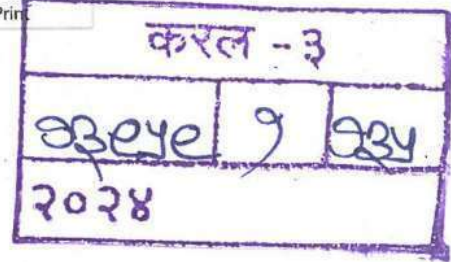 Print
करल - ३
१३९५९ १ १३५
२०२४